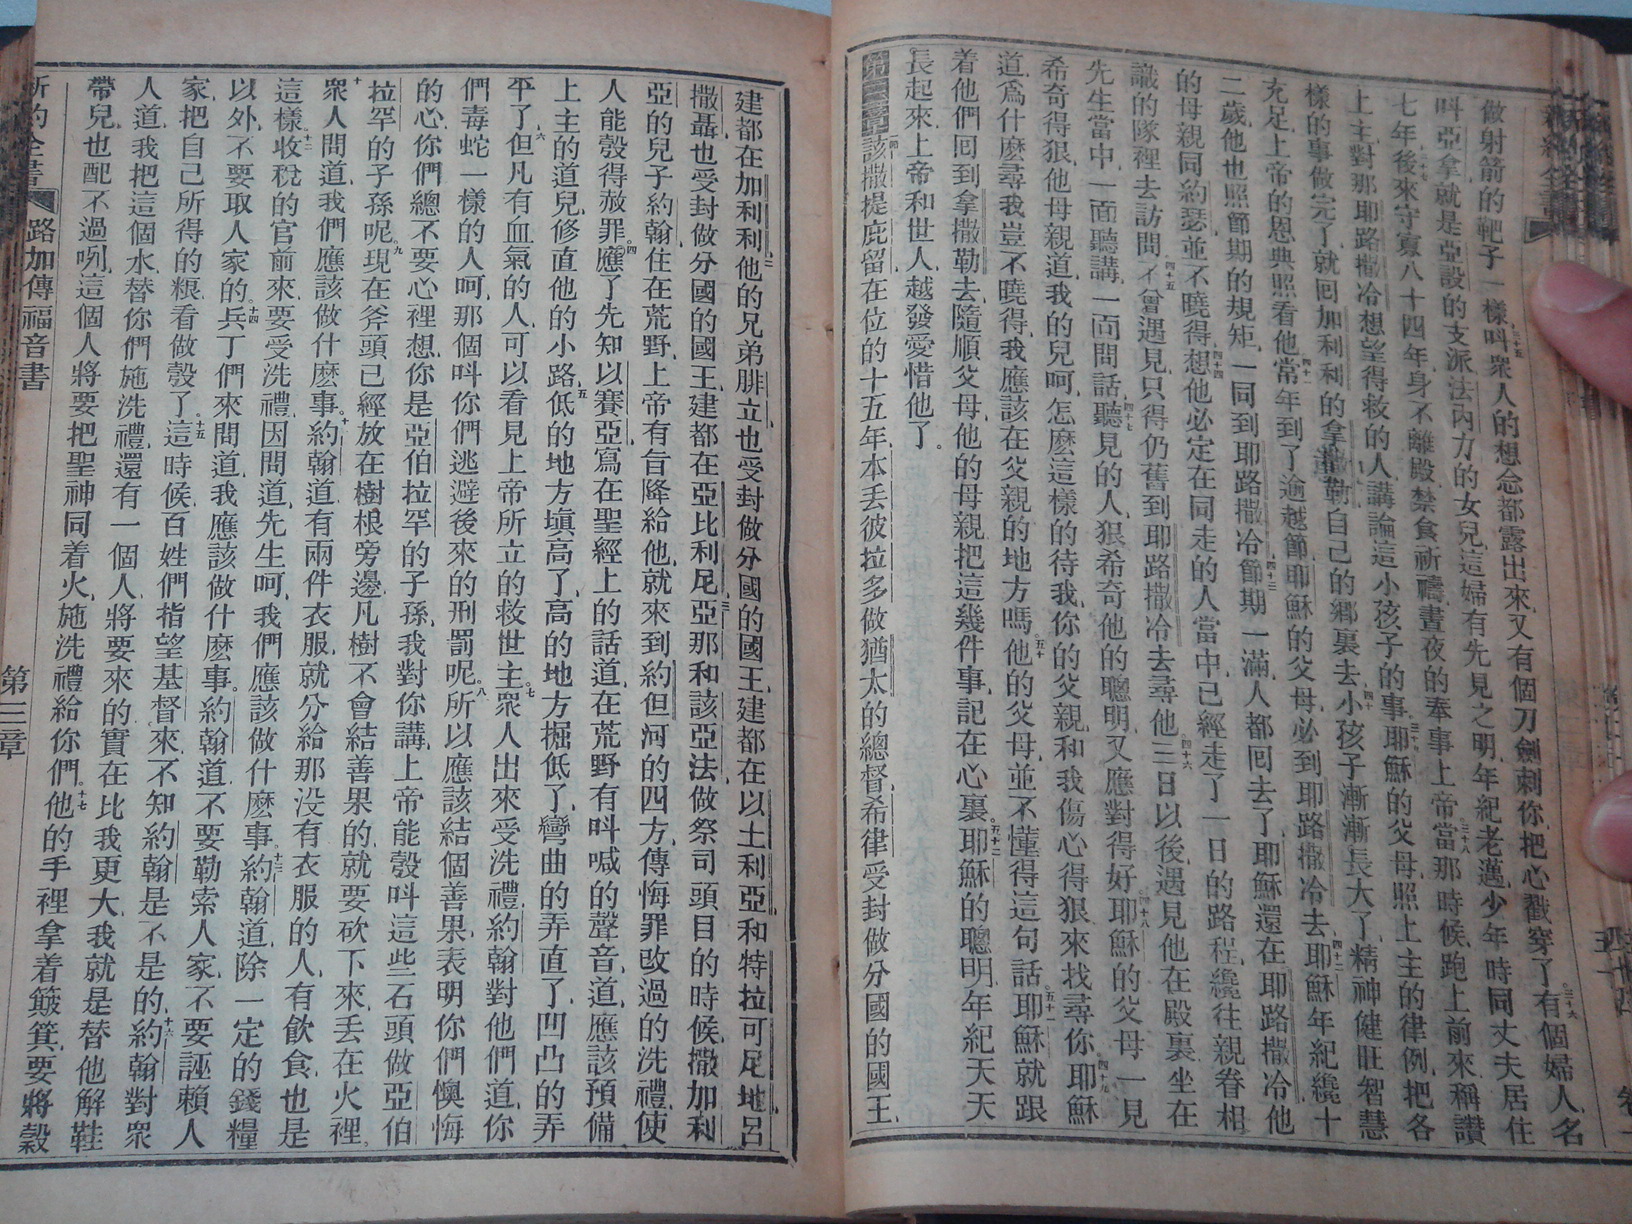 做射箭的靶子一樣呌衆人的想念都露出來又有個刀劍刺你把心戳穿了三十六有個婦人名
呌亞拿就是亞設的支派法內力的女兒這婦有先見之明年紀老邁少年時同丈夫居住
七年後來守寡八十四年身不離殿禁食祈禱晝夜的奉事上帝三十八當那時候跑上前來稱讚
上主對那耶路撒冷想望得救的人講論這小孩子的事三十九耶穌的父母照上主的律例把各
樣的事做完了就回加利利的拿撒勒自己的鄉裏去四十小孩子漸漸長大了精神健旺智慧
充足上帝的恩典照看他四十一常年到了逾越節耶穌的父母必到耶路撒冷去四十二耶穌年紀纔十
二歲他也照節期的規矩一同到耶路撒冷四十三節期一滿人都回去了耶穌還在耶路撒冷他
的母親同約瑟並不曉得四十四想他必定在同走的人當中已經走了一日的路程纔往親眷相
識的隊裡去訪問四十五不會遇見只得仍舊到耶路撒冷去尋他四十六三日以後遇見他在殿裏坐在
先生當中一面聽講一面問話四十七聽見的人狠希奇他的聰明又應對得好四十八耶穌的父母一見
希奇得狠他母親道我的兒呵怎麽這樣的待我你的父親和我傷心得狠來找尋你四十九耶穌
道爲什麽尋我豈不曉得我應該在父親的地方嗎五十他的父母並不懂得這句話五十一耶穌就跟
着他們回到拿撒勒去隨順父母他的母親把這幾件事記在心裏五十二耶穌的聰明年紀天天
長起來上帝和世人越發愛惜他了
第三章該撒提庇留在位的十五年本丢彼拉多做猶太的總督希律受封做分國的國王
建都在加利利他的兄弟腓立也受封做分國的國王建都在以土利亞和特拉可尼地呂
撒聶也受封做分國的國王建都在亞比利尼亞那和該亞法做祭司頭目的時候撒加利
亞的兒子約翰住在荒野上帝有旨降給他就來到約但河的四方傳悔罪改過的洗禮使
人能彀得赦罪四應了先知以賽亞寫在聖經上的話道在荒野有呌喊的聲音道應該預備
上主的道兒修直他的小路五低的地方塡高了高的地方掘低了彎曲的弄直了凹凸的弄
平了六但凡有血氣的人可以看見上帝所立的救世主七衆人出來受洗禮約翰對他們道你
們毒蛇一樣的人呵那個呌你們逃避後來的刑罰呢八所以應該結個善果表明你們懊悔
的心你們總不要心裡想你是亞伯拉罕的子孫我對你講上帝能彀呌這些石頭做亞伯
拉罕的子孫呢九現在斧頭已經放在樹根旁邊凡樹不會結善果的就要砍下來丢在火裡
十衆人問道我們應該做什麽事十一約翰道有兩件衣服就分給那没有衣服的人有飲食也是
這樣十二收稅的官前來要受洗禮因問道先生呵我們應該做什麽事十三約翰道除一定的錢糧
以外不要取人家的十四兵丁們來問道我應該做什麽事約翰道不要勒索人家不要誣賴人
家把自己所得的糧看做彀了十五這時候百姓們指望基督來不知約翰是不是的十六約翰對衆
人道我把這個水替你們施洗禮還有一個人將要來的實在比我更大我就是替他解鞋
帶兒也配不過咧這個人將要把聖神同着火施洗禮給你們十七他的手裡拿着簸箕要將穀
新約全書 路加傳福音書 第三章